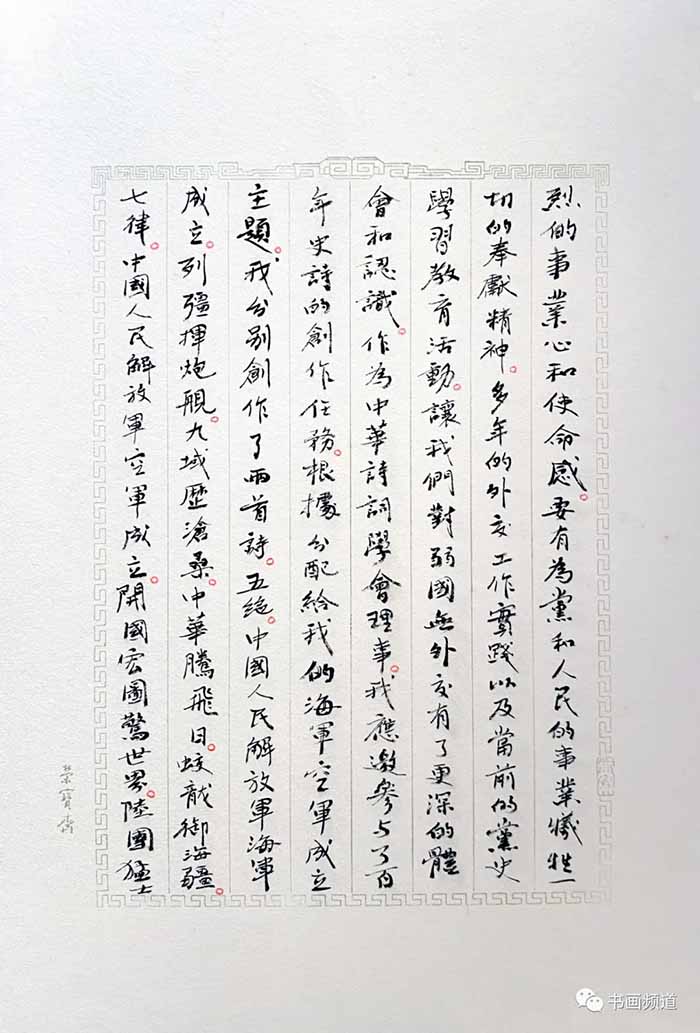 烈的事業心和使命感。要有為黨和人民的事業犧牲一
切的奉獻精神。多年的外交工作實踐以及當前的黨史
學習教育活動。讓我們對弱國無外交有了更深的體
會和認識。作為中華詩詞學會理事。我應邀參与了百
年史詩的創作任務。根據分配給我的海軍空軍成立
主題。我分别創作了兩首詩。五絕。中國人民解放軍海軍
成立。列疆揮炮艦。九域歷滄桑。中華騰飛日。蛟龍御海疆。
七律。中國人民解放軍空軍成立。開國宏圖驚世界。陸國猛士
榮寶齋
书画频道